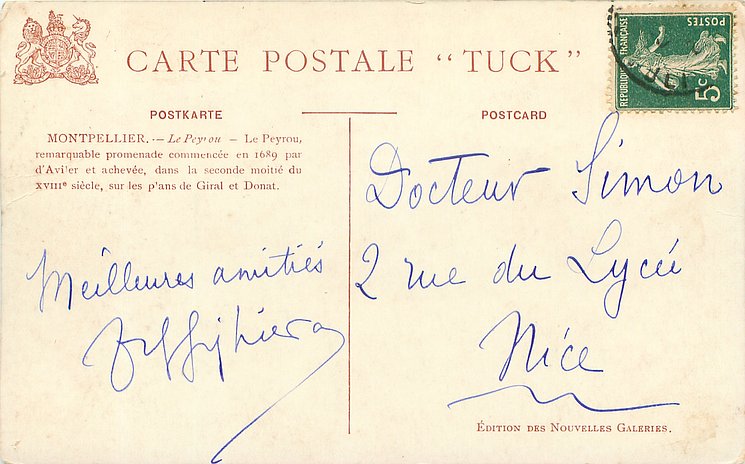 CARTE POSTALE "TUCK"
POSTKARTE
POSTCARD
MONTPELLIER. — Le Peyrou — Le Peyrou,
remarquable promenade commencée en 1689 par
d'Aviler et achevée, dans la seconde moitié du
XVIIIe siècle, sur les p'ans de Giral et Donat.
Meilleures amitiés
Docteur Simon
2 rue du Lycée
Nice
ÉDITION DES NOUVELLES GALERIES.
RÉPUBLIQUE FRANÇAISE
POSTES
5c